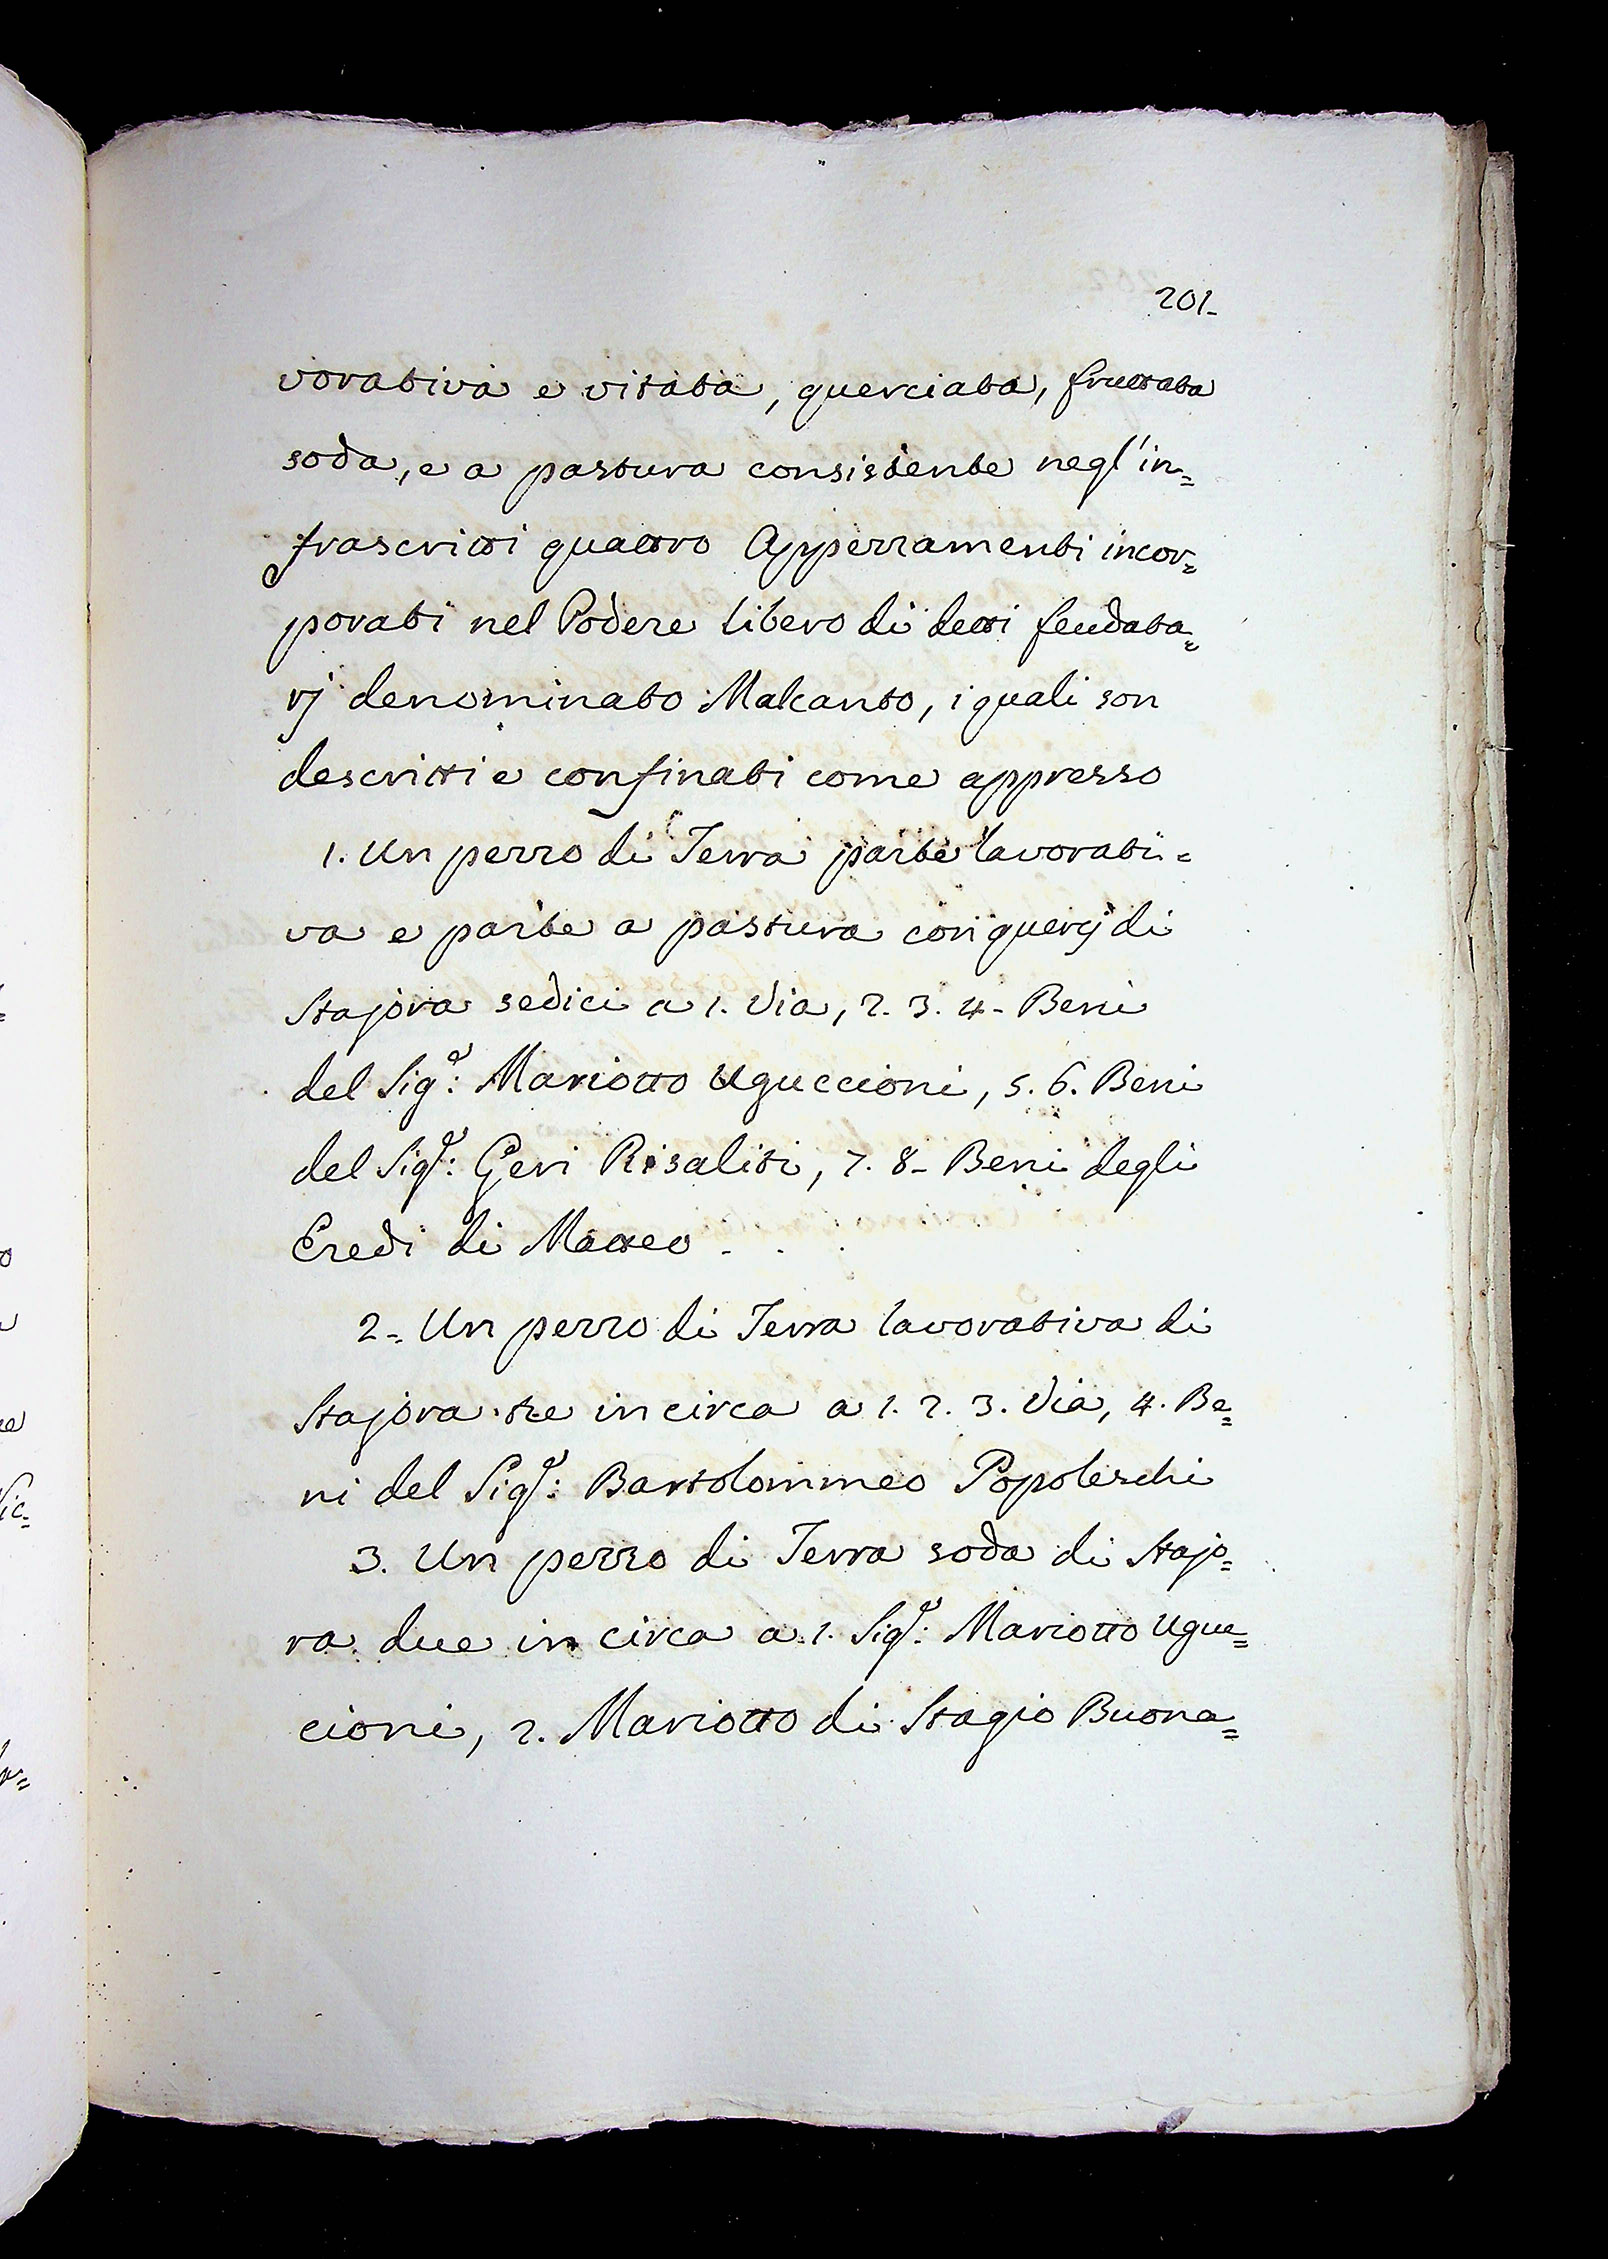 201-
vorativa e vitata, querciata, fruttata
soda, e a pastura consistente negl'in=
frascritti quattro Appezzamenti incor=
porati nel Podere libero di detti feudata=
rj denominato Malcanto, i quali son
descritti e confinati come appresso
1. Un pezzo di Terra parte lavorati=
va e parte a pastura con quercj di
Stajora sedici a 1. Via, 2. 3. 4- Beni
del Sig.e: Mariotto Uguccioni, 5. 6. Beni
del Sig.e: Geri Risaliti, 7. 8- Beni degli
Eredi di Matteo - . .
2- Un pezzo di Terra lavorativa di
Stajora tre in circa a 1. 2. 3. Via, 4. Be=
ni del Sig.e: Bartolommeo Popoleschi
3. Un pezzo di Terra soda di Stajo=
ra due in circa a 1. Sig.e: Mariotto Ugu=
cioni, 2. Mariotto di Stagio Buona=